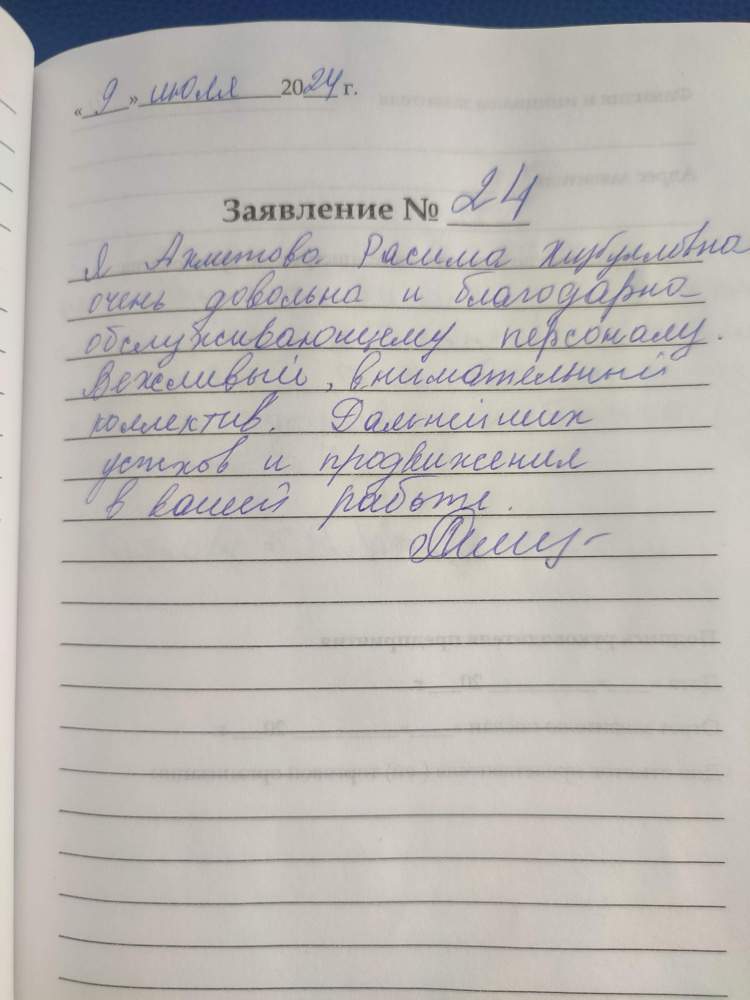 « 9 » июля 2024 г.
Заявление № 24
Я Ахметова Расима Хизбулловна
очень довольна и благодарна
обслуживающему персоналу.
Вежливый, внимательный
коллектив. Дальнейших
успехов и продвижения
в вашей работе.